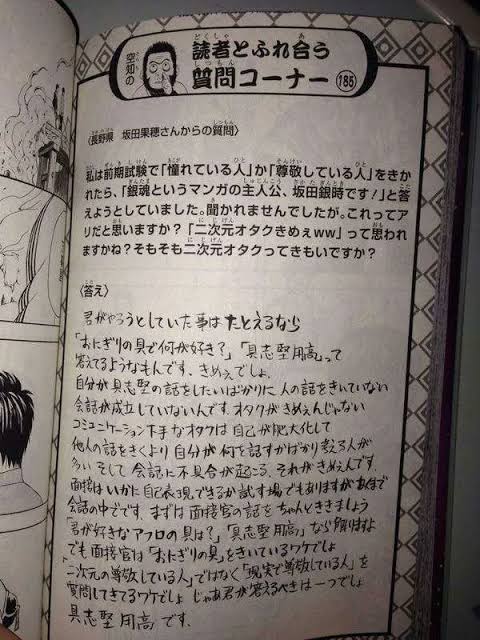 空知の
読者とふれ合う
質問コーナー
185
〈長野県 坂田果穂さんからの質問〉
私は前期試験で「憧れている人」か「尊敬している人」をきか
れたら、「銀魂というマンガの主人公、坂田銀時です！」と答
えようとしていました。聞かれませんでしたが。これってア
リだと思いますか？「二次元オタクきめぇww」って思われ
ますかね？そもそも二次元オタクってきもいですか？
〈答え〉
君がやろうとしていた事は たとえるなら
「おにぎりの具で何が好き？」「具志堅用高」って
答えてるようなもんです、きめぇでしょ。
自分が具志堅の話をしたいばかりに 人の話をきいていない
会話が成立していないんです。オタクがきめぇんじゃない
コミュニケーション下手なオタクは 自己が肥大化して
他人の話をきくより 自分が何を話すかばかり考える人が
多い そして 会話に不具合が起こる。それがきめぇんです
面接は いかに自己表現できるか試す場でもありますが あくまで
会話の中でです。まずは面接官の話をちゃんとききましょう
「君が好きなアフロの具は？」「具志堅用高」なら解りますよ
でも面接官は「おにぎりの具」をきいているワケでしょ
「二次元の尊敬している人」ではなく「現実で尊敬している人」を
質問してきてるワケでしょ じゃあ君が答えるべきは一つでしょ
具志堅用高 です。